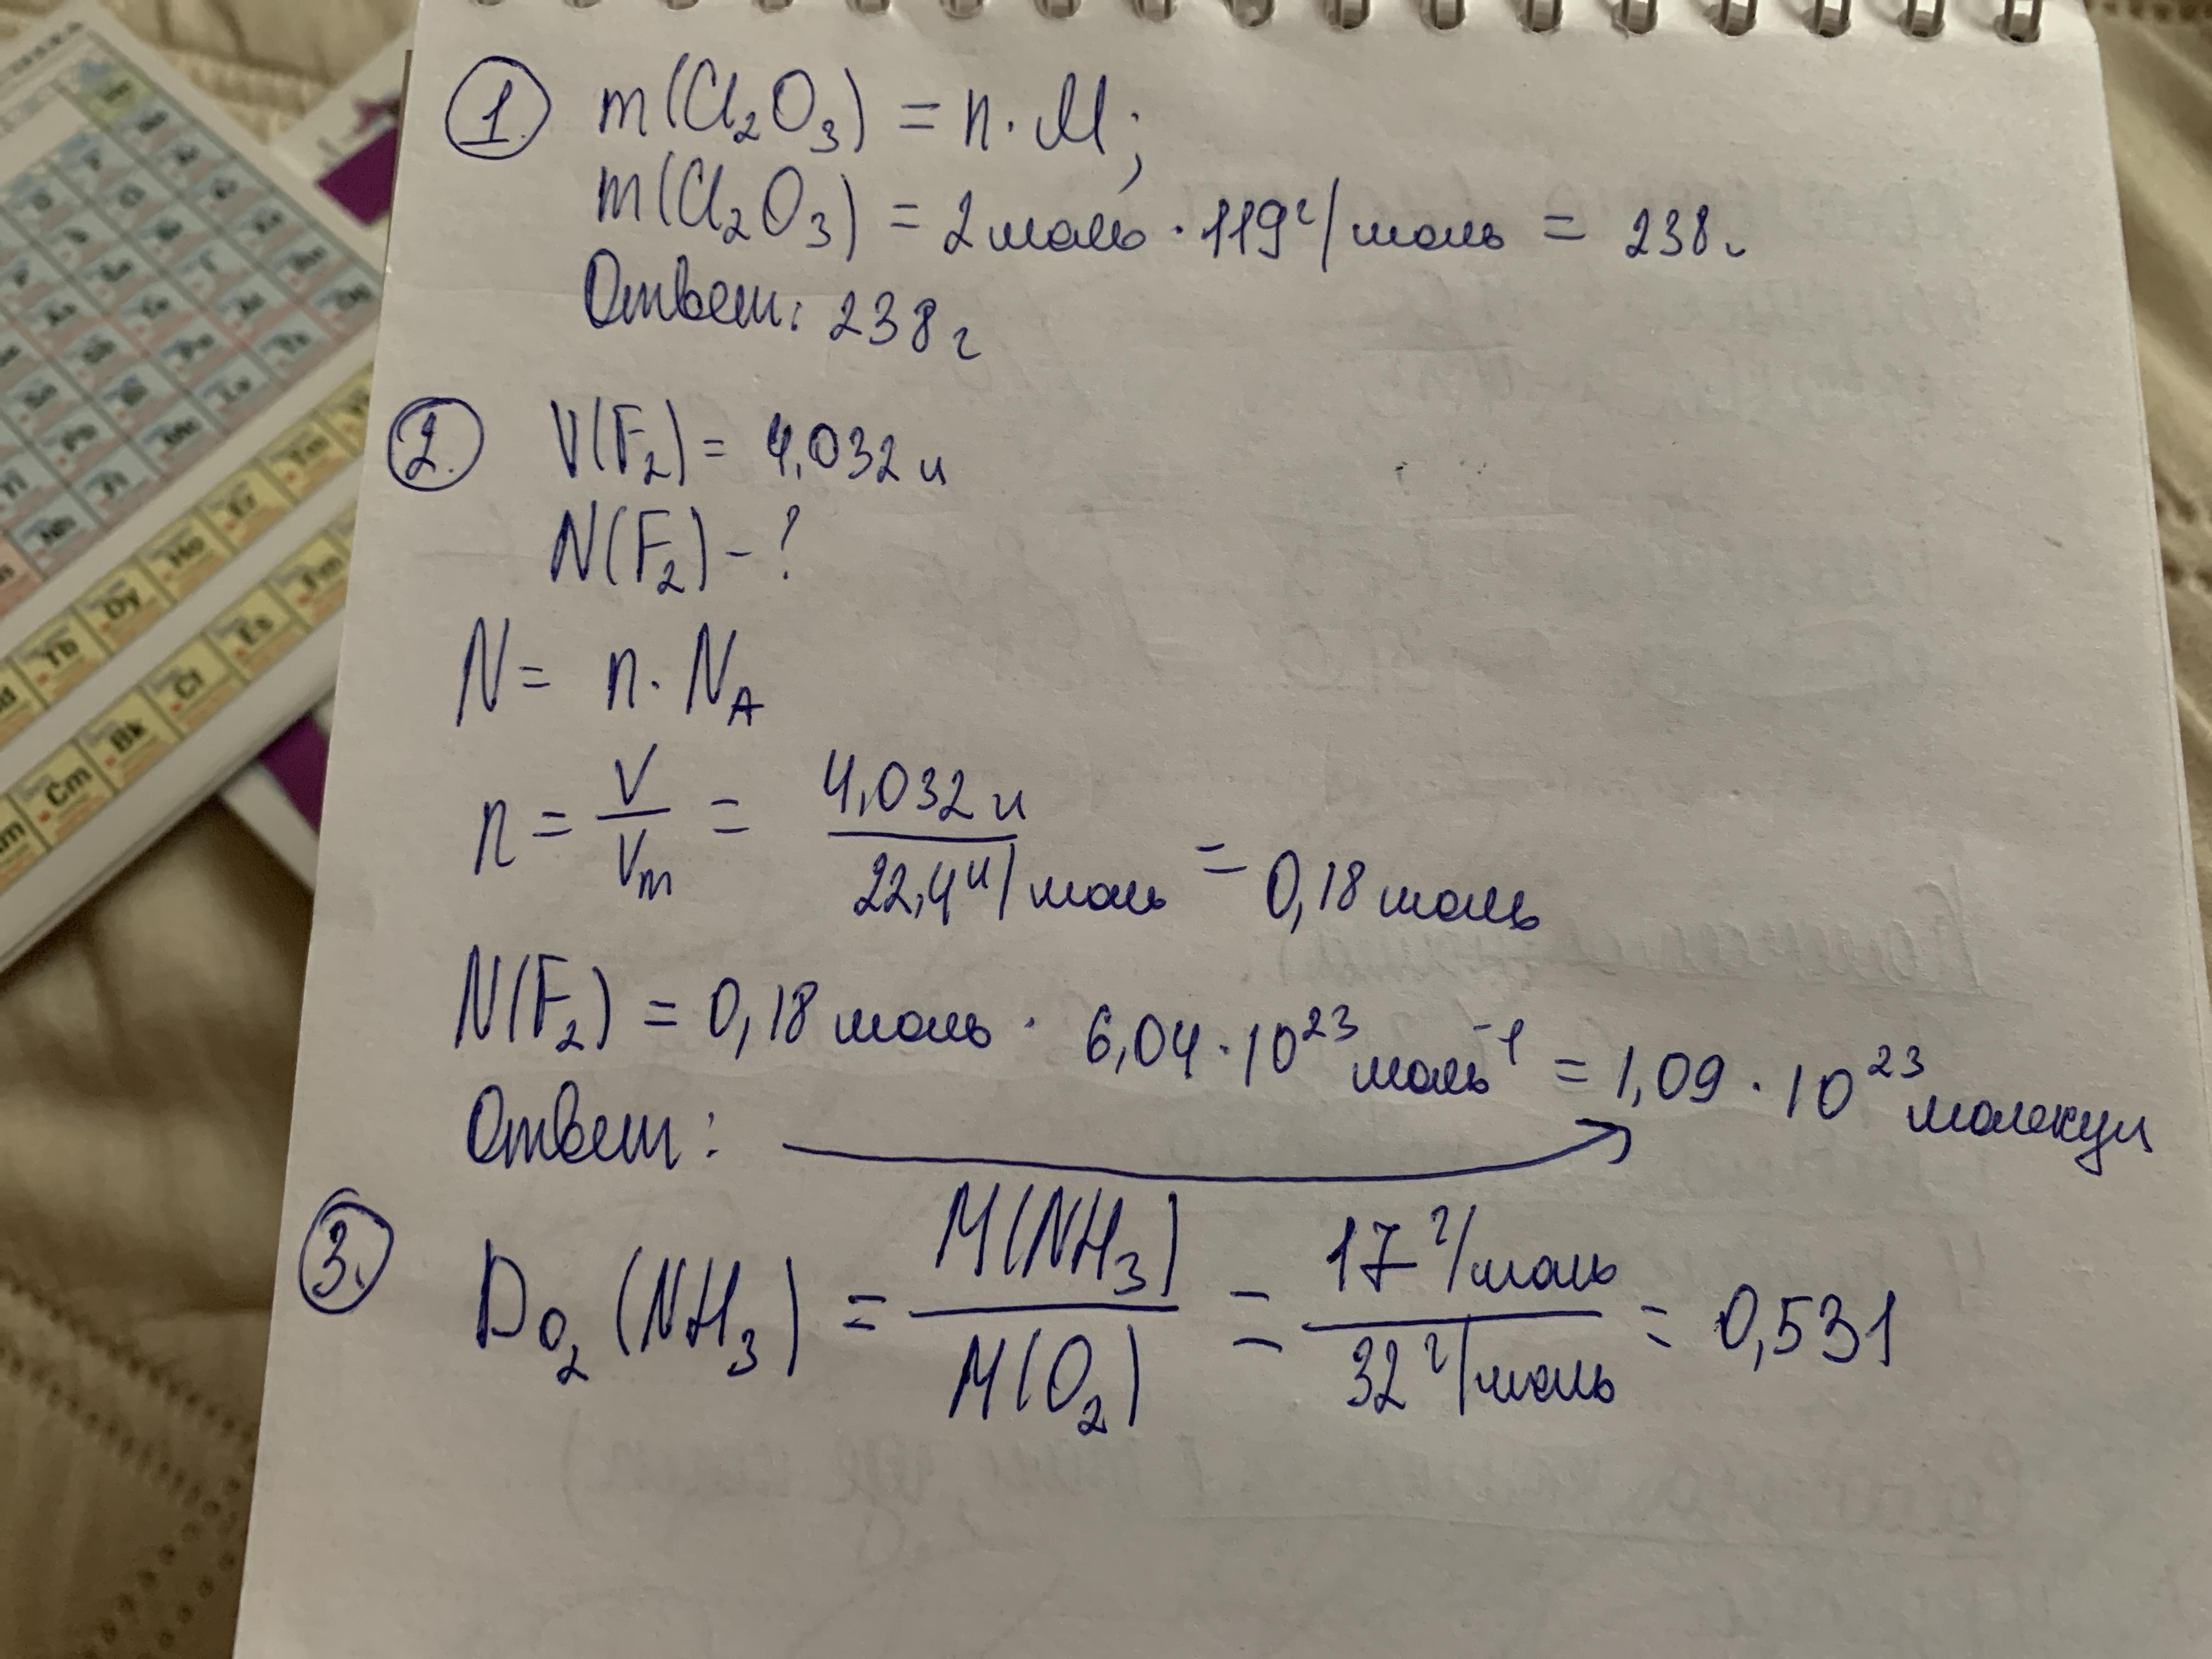 1 m(Cl₂O₃) = n · M;
m(Cl₂O₃) = 2 моль · 119 г/моль = 238 г
Ответ: 238 г
2. V(F₂) = 4,032 л
N(F₂) - ?
N = n · N_A
n = V/Vm = 4,032 л / 22,4 л/моль = 0,18 моль
N(F₂) = 0,18 моль · 6,04 · 10²³ моль⁻¹ = 1,09 · 10²³ молекул
Ответ: →
3. D_O₂ (NH₃) = M(NH₃) / M(O₂) = 17 г/моль / 32 г/моль = 0,531
Tb Dy Ho Er Tm
Cm Bk Cf Es Fm